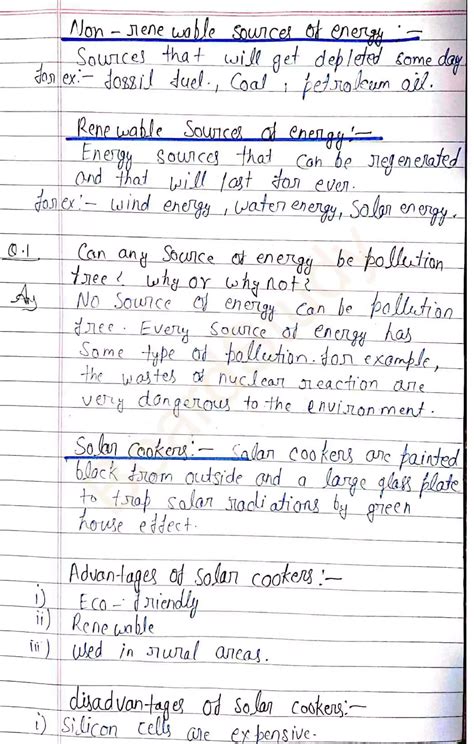 Non-renewable sources of energy :-
Sources that will get depleted some day
for ex:- fossil fuel., Coal, petroleum oil.
Renewable Sources of energy:-
Energy sources that can be regenerated
and that will last for ever.
for ex:- wind energy, water energy, Solar energy.
Q.1 Can any source of energy be pollution
free? Why or why not?
Ans No source of energy can be pollution
free. Every source of energy has
some type of pollution. for example,
the wastes of nuclear reaction are
very dangerous to the environment.
Solar Cookers:- Solar cookers are painted
black from outside and a large glass plate
to trap solar radiations by green
house effect.
Advantages of solar cookers:-
i) Eco-friendly
ii) Renewable
iii) used in rural areas.
disadvantages of solar cookers:-
i) Silicon cells are expensive.